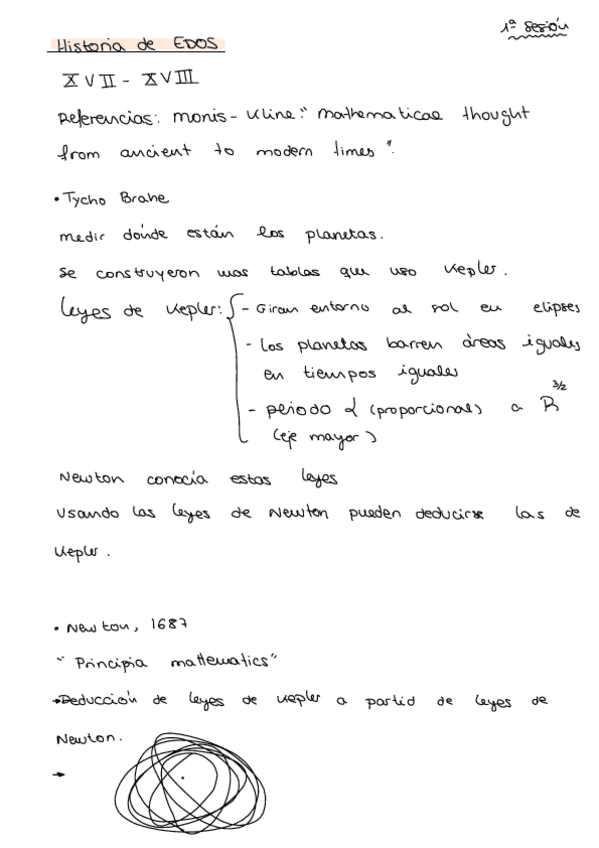 1ª sesión
Historia de EDOS
XVII - XVIII
Referencias: Morris - Kline: "Mathematical thought
from ancient to modern times".
• Tycho Brahe
medir dónde están los planetas.
Se construyeron unas tablas que uso Kepler.
Leyes de Kepler: - Giran entorno al sol en elipses
- Los planetas barren áreas iguales
en tiempos iguales
- periodo α (proporcional) a R^3/2
(eje mayor)
Newton conocía estas leyes
Usando las leyes de Newton pueden deducirse las de
Kepler.
• Newton, 1687
"Principia mathematics"
→Deducción de leyes de Kepler a partid de leyes de
Newton.
→